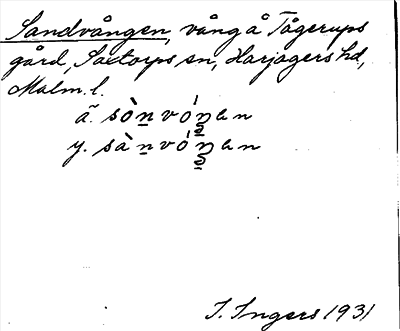 Sandvången, vång å Tågerups
gård, Saxtorps sn, Harjagers hd,
Malm. l.
ä. sònvóŋan
y. sànvóŋan
I. Ingers 1931